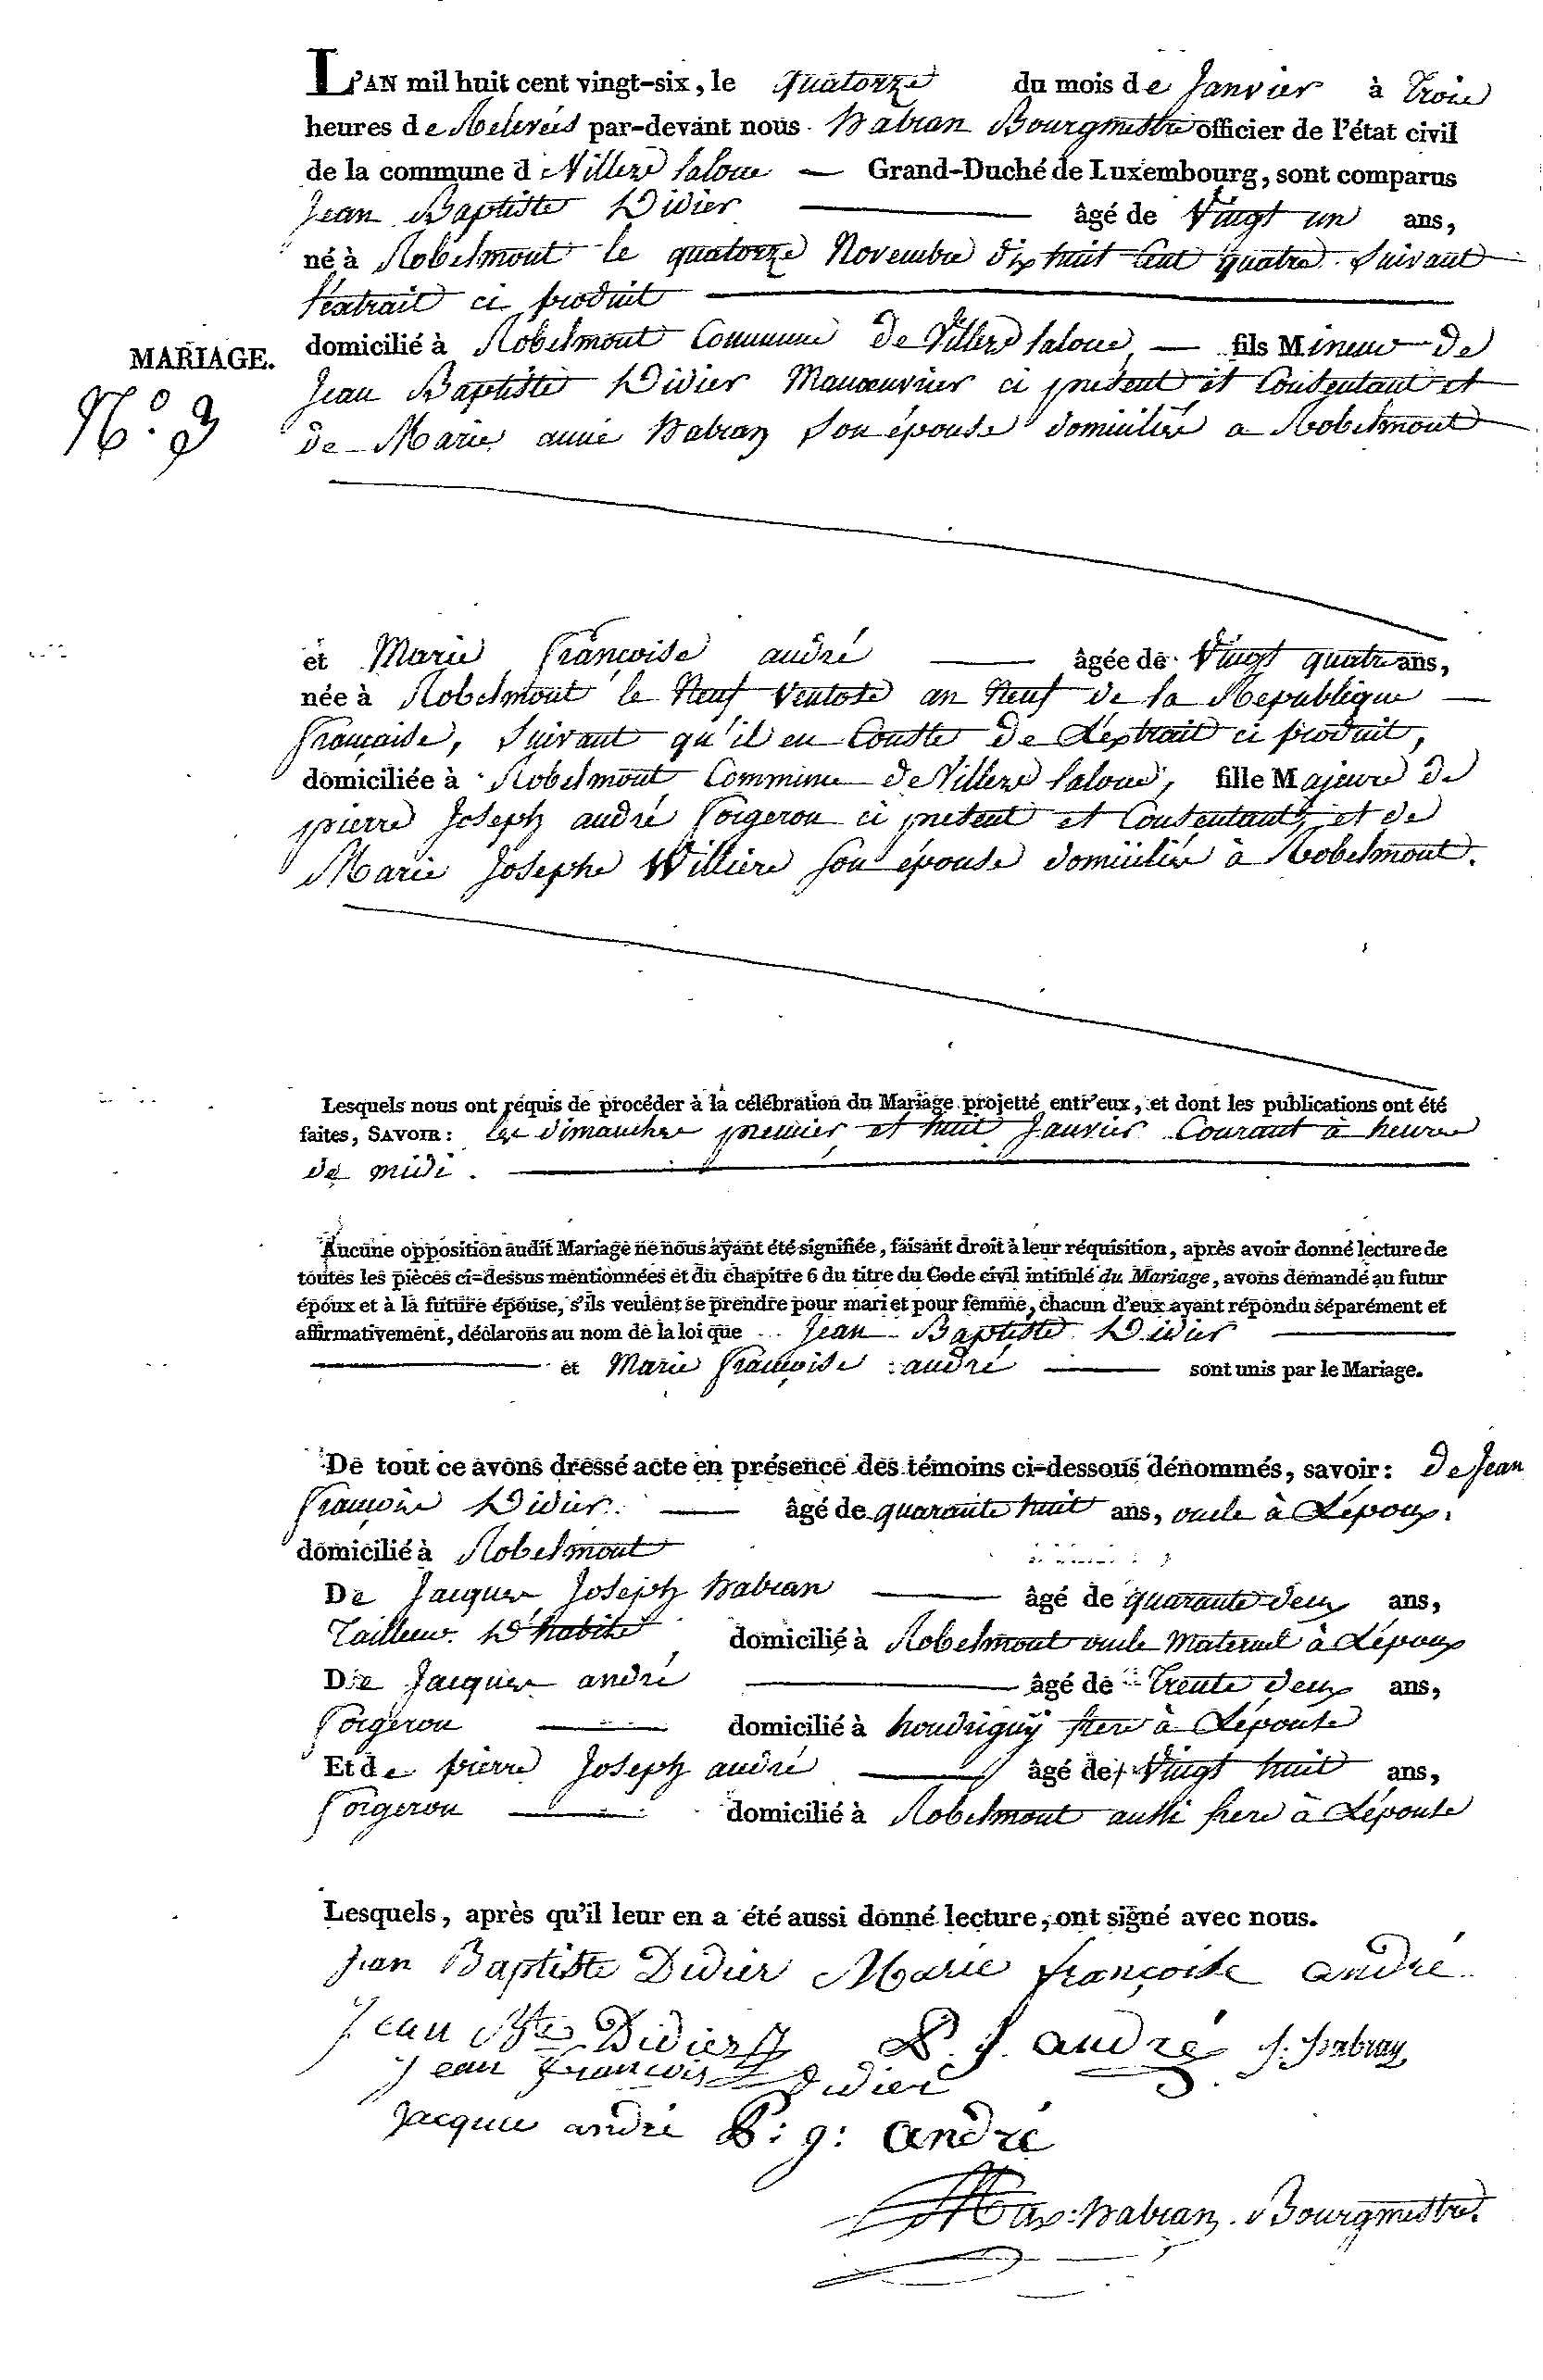 L'AN mil huit cent vingt-six, le quatorze du mois de Janvier à trois
heures de Relevées par-devant nous habran Bourgmestre officier de l'état civil
de la commune d e Villers laloue — Grand-Duché de Luxembourg, sont comparus
Jean Baptiste Didier — âgé de Vingt un ans,
né à Robelmont le quatorze Novembre dix huit Cent quatre Suivant
l'extrait ci produit —
domicilié à Robelmont Commune de Villers laloue, — fils Mineur de
MARIAGE.
N.° 3
Jean Baptiste Didier Manœuvrier ci présent et Consentant et
de Marie anne habran son épouse domiciliés a Robelmont
et Marie françoise andré — âgée de Vingt quatre ans,
née à Robelmont le Neuf Ventose an Neuf de la Republique —
française, Suivant qu'il en Conste de L'extrait ci produit,
domiciliée à Robelmont Commune de Villers laloue, fille Majeure de
pierre Joseph andré forgeron ci présent et Consentant, et de
Marie Josephe Willière son épouse domiciliés à Robelmont.
Lesquels nous ont requis de procéder à la célébration du Mariage projetté entr'eux, et dont les publications ont été
faites, SAVOIR : les dimanches premier et huit Janvier Courant à heure
de midi. —
Aucune opposition audit Mariage ne nous ayant été signifiée, faisant droit à leur réquisition, après avoir donné lecture de
toutes les pièces ci-dessus mentionnées et du chapitre 6 du titre du Code civil intitulé du Mariage, avons demandé au futur
époux et à la future épouse, s'ils veulent se prendre pour mari et pour femme, chacun d'eux ayant répondu séparément et
affirmativement, déclarons au nom de la loi que Jean Baptiste Didier —
— et Marie françoise andré — sont unis par le Mariage.
De tout ce avons dressé acte en présence des témoins ci-dessous dénommés, savoir : de Jean
françois Didier — âgé de quarante huit ans, oncle à L'époux.
domicilié à Robelmont
De Jacques Joseph habran — âgé de quarante deux ans,
Tailleur D'habits domicilié à Robelmont oncle Maternel à L'époux
De Jacques andré — âgé de Trente deux ans,
forgeron — domicilié à houdrigny frere à L'épouse
Et de pierre Joseph andré — âgé de Vingt huit ans,
forgeron — domicilié à Robelmont aussi frere à L'épouse
Lesquels, après qu'il leur en a été aussi donné lecture, ont signé avec nous.
jean Baptiste Didier Marie françoise andré
Jean Bte Didier P. J. andré J. J. habran
Jean françois Didier
Jacques andré P : j : andré
Max : habran. Bourgmestre.